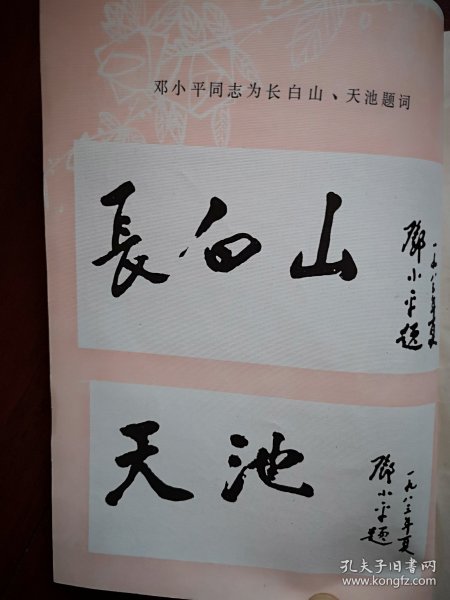 邓小平同志为长白山、天池题词
長白山
一九八三年夏
鄧小平題
天池
一九八三年夏
鄧小平題
孔夫子旧书网
www.kongfz.com